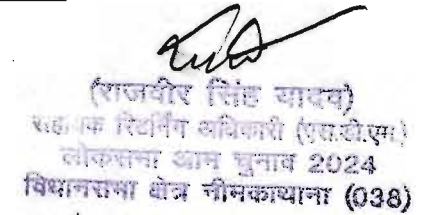 (राजवीर सिंह यादव)
सहायक रिटर्निंग अधिकारी (एस.डी.एम.)
लोकसभा आम चुनाव 2024
विधानसभा क्षेत्र नीमकाथाना (038)